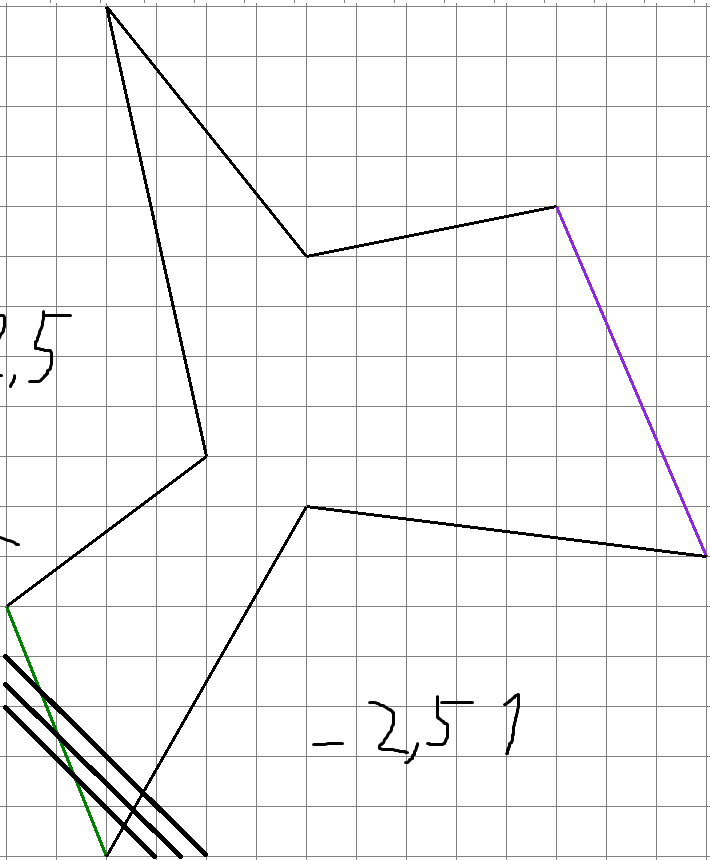 2,5
– 2,5 1